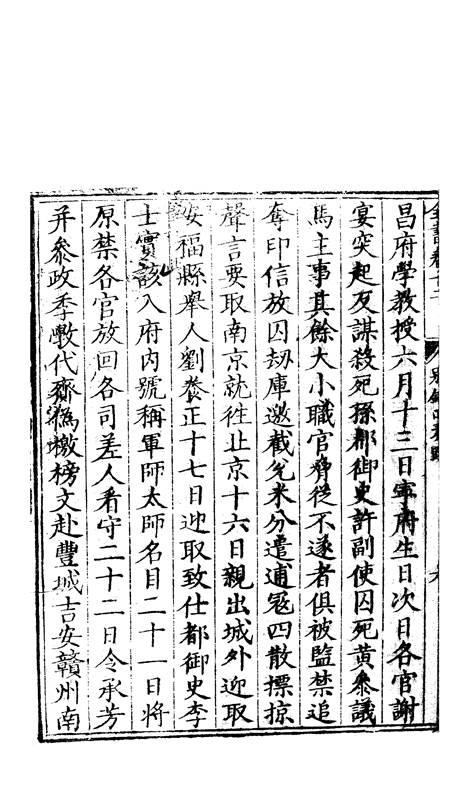 昌府學教授六月十三日寧府生日次日各官謝
宴突起反謀殺死孫都御史許副使囚死黃參議
馬主事其餘大小職官脅從不遂者俱被監禁追
奪印信放囚刼庫邀截兌米分遣逋寇四散摽掠
聲言要取南京就徃北京十六日親出城外迎取
安福縣舉人劉養正十七日迎取致仕都御史李
士實該入府內號稱軍師太師名目二十一日將
原禁各官放回各司差人看守二十二日令承芳
并叅政季斆代齎僞檄榜文赴豐城吉安贛州南